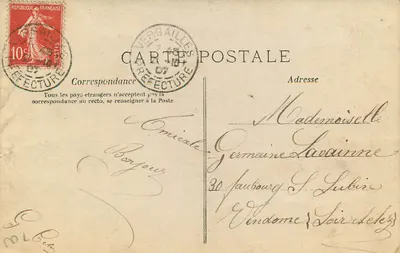 RÉPUBLIQUE FRANÇAISE
10c
POSTES
VERSAILLES
PREFECTURE
CARTE POSTALE
Correspondance
Adresse
Tous les pays étrangers n'acceptent pas la
correspondance au recto, se renseigner à la Poste
Amical
Bonjour
Mademoiselle
Germaine Lavainne
30 faubourg St Lubin
Vendome (Loir et Cher)